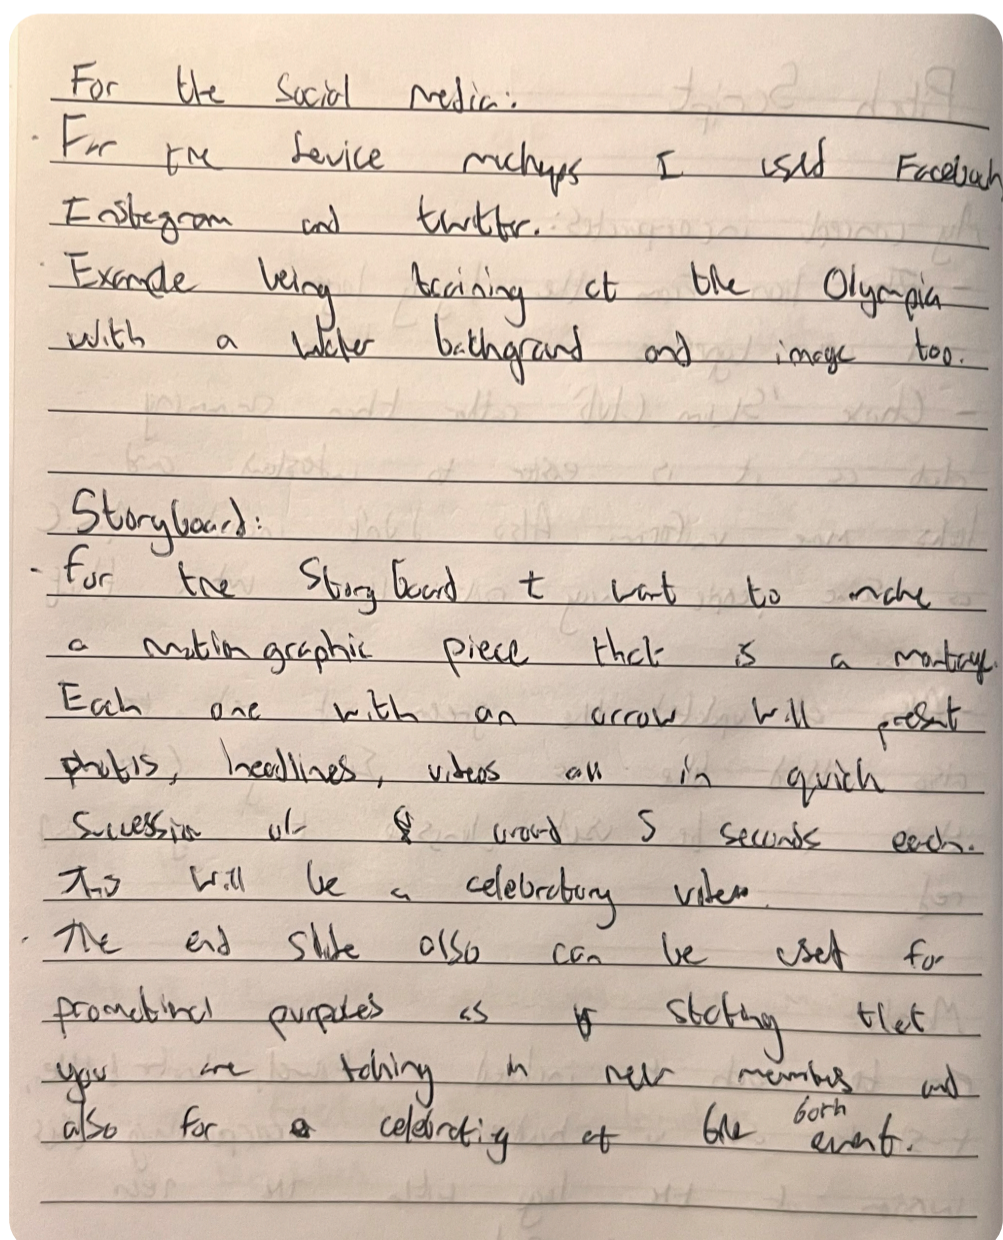 For the Social media:
· For the device mockups I used Facebook,
Instagram and twitter.
· Example being training at the Olympia
with a water background and image too.
Storyboard:
· for the Storyboard I want to make
a motion graphic piece that is a montage.
Each one with an arrow will present
photos, headlines, videos all in quick
Succession of around 5 seconds each.
This will be a celebratory video.
· The end slide also can be used for
promotional purposes as stating that
you are taking in new members and
also for celebrating at the both event.